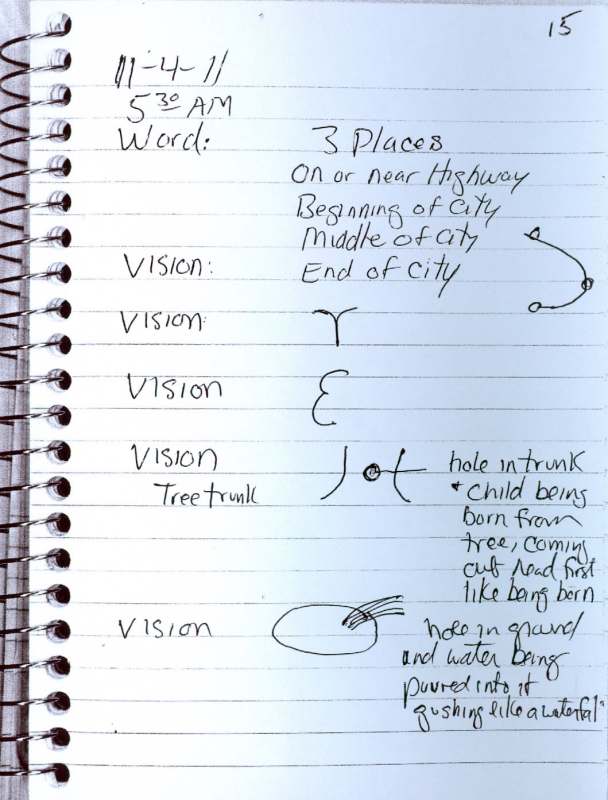 15
11-4-11
5 30 AM
Word: 3 Places
On or near Highway
Beginning of City
Middle of City
Vision: End of City
Vision:
Vision
Vision
Tree trunk
hole in trunk
+ Child being
Born from
tree, coming
out head first
like being born
Vision
hole in ground
and water being
poured into it
gushing like a waterfall"